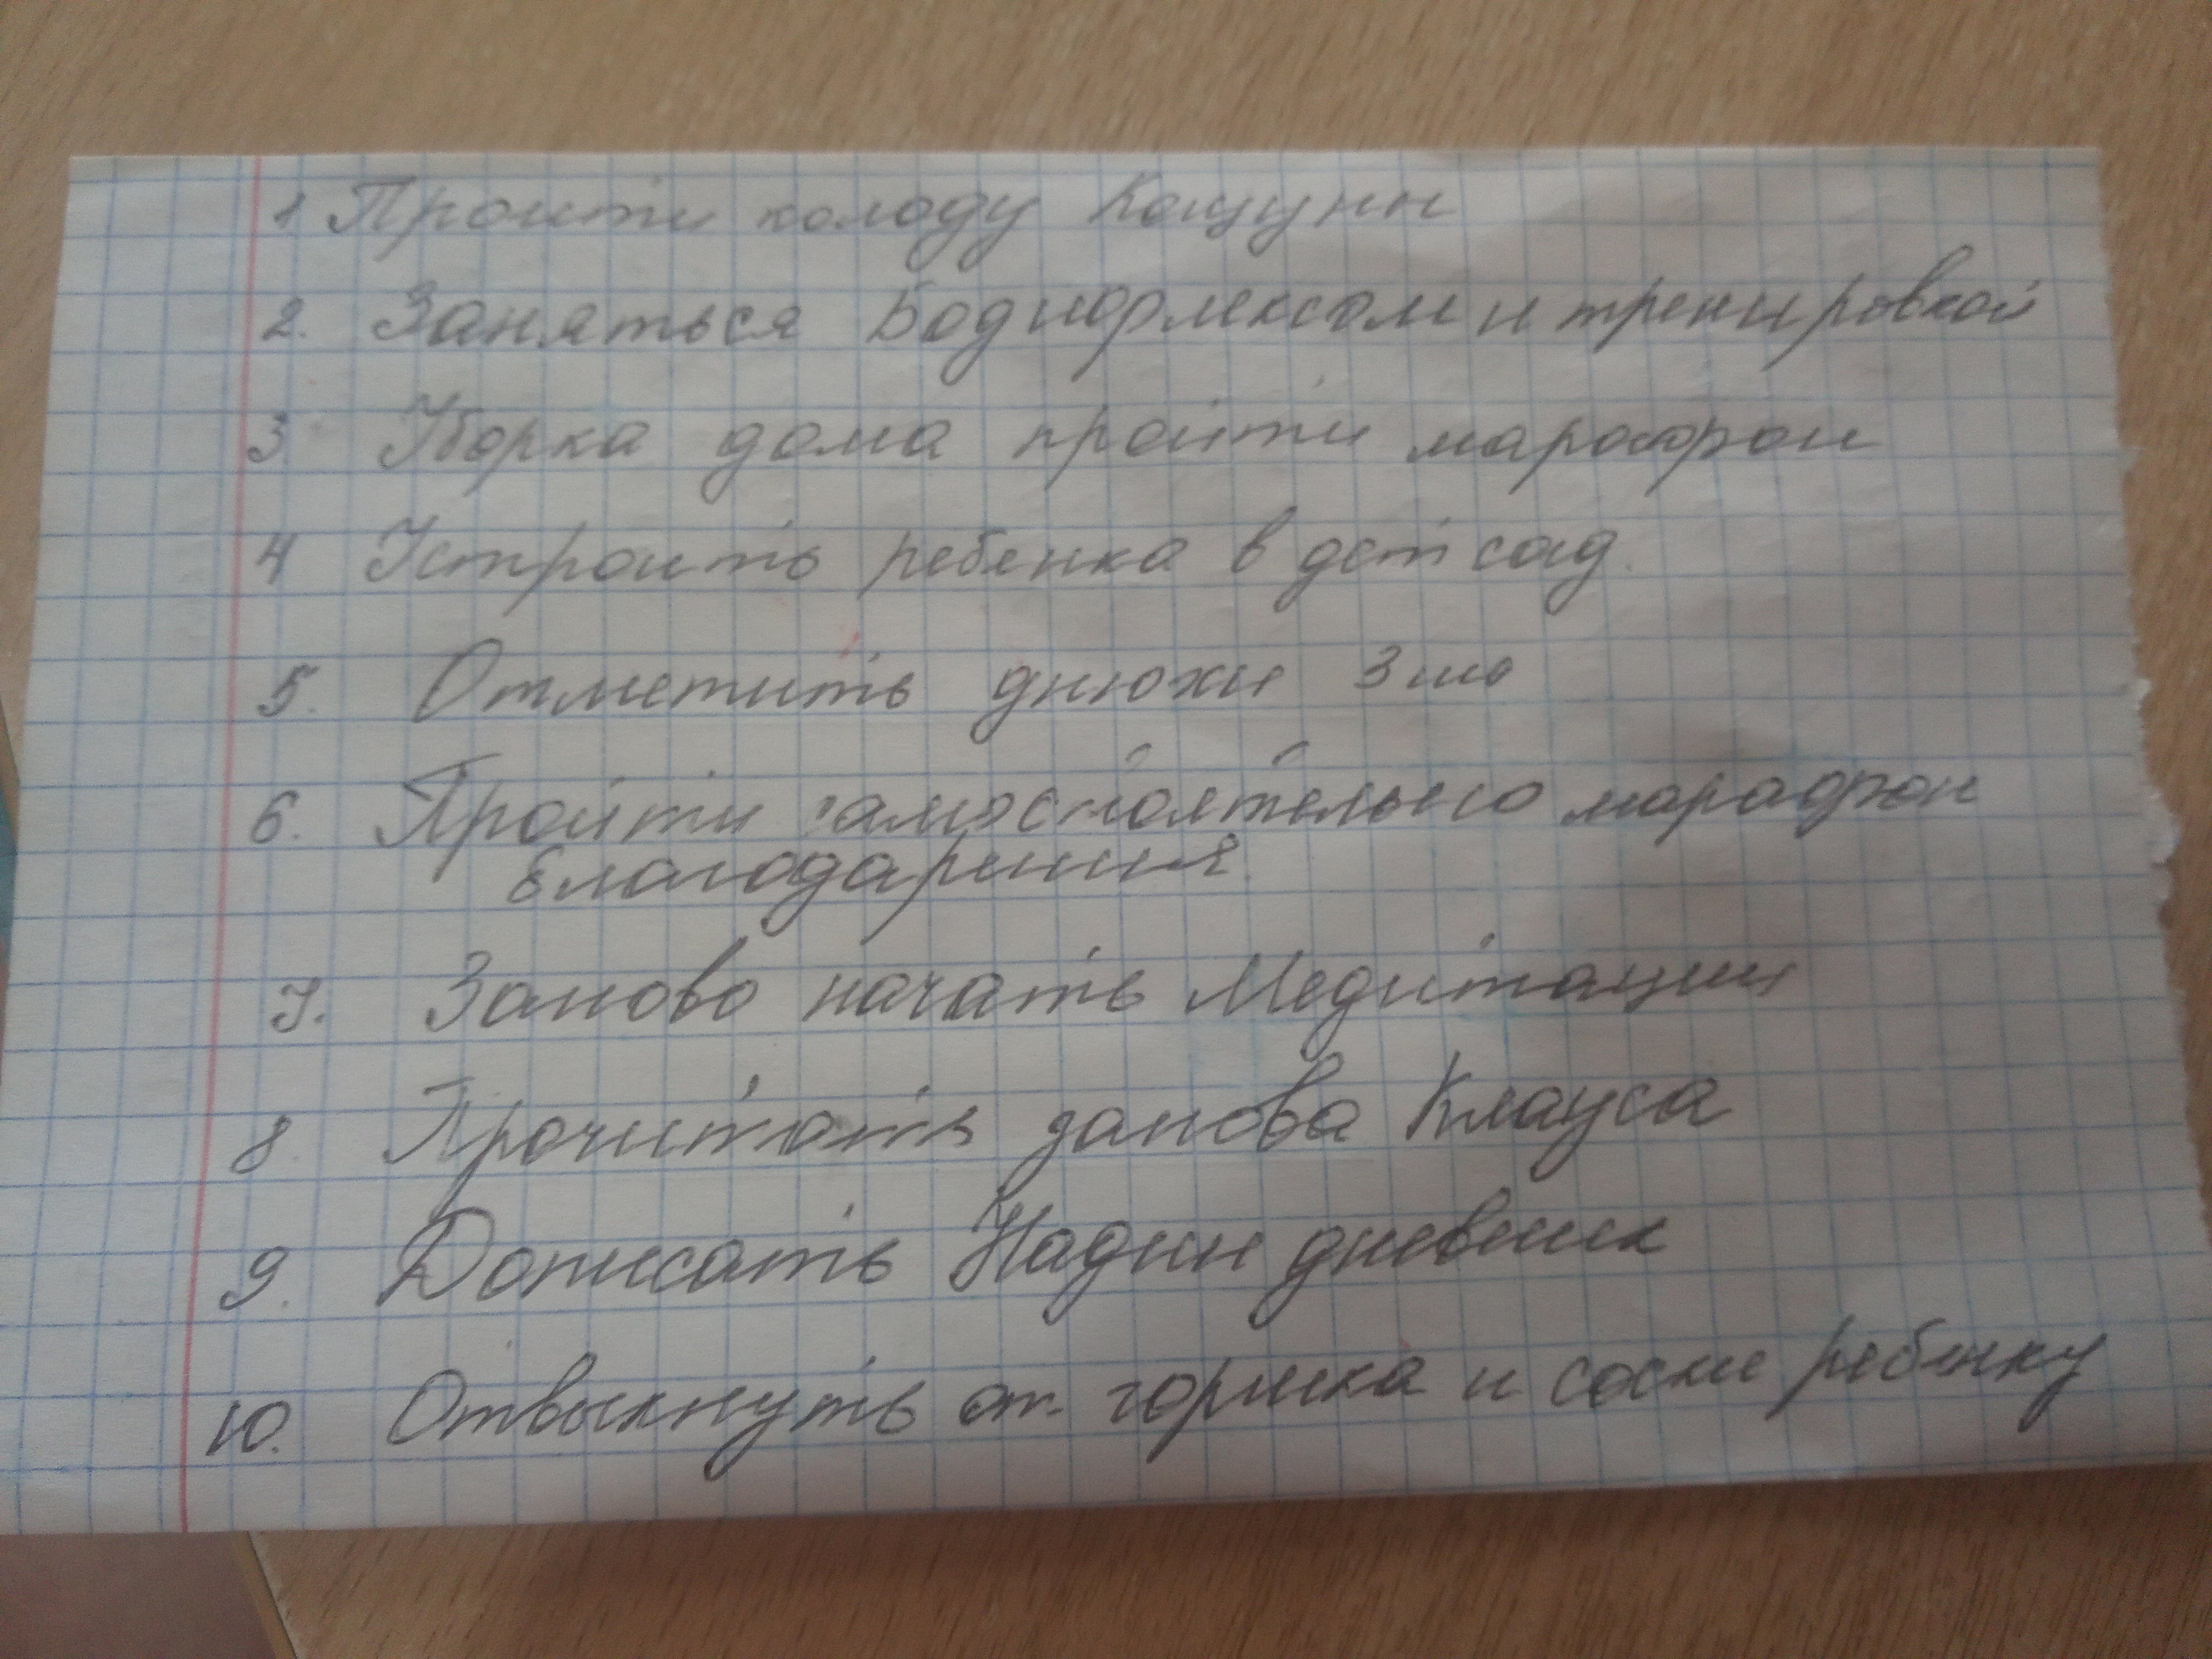 1 Пройти колоду Кощуны
2. Заняться Бодифлексом и тренировкой
3 Уборка дома пройти марафон
4 Устроить ребенка в детсад.
5. Отметить днюхи 3 шт
6. Пройти самостоятельно марафон
благодарения.
7. Заново начать Медитации
8. Прочитать занова Клауса
9. Дописать Надин дневник
10. Отвыкнуть от горшка и соски ребенку